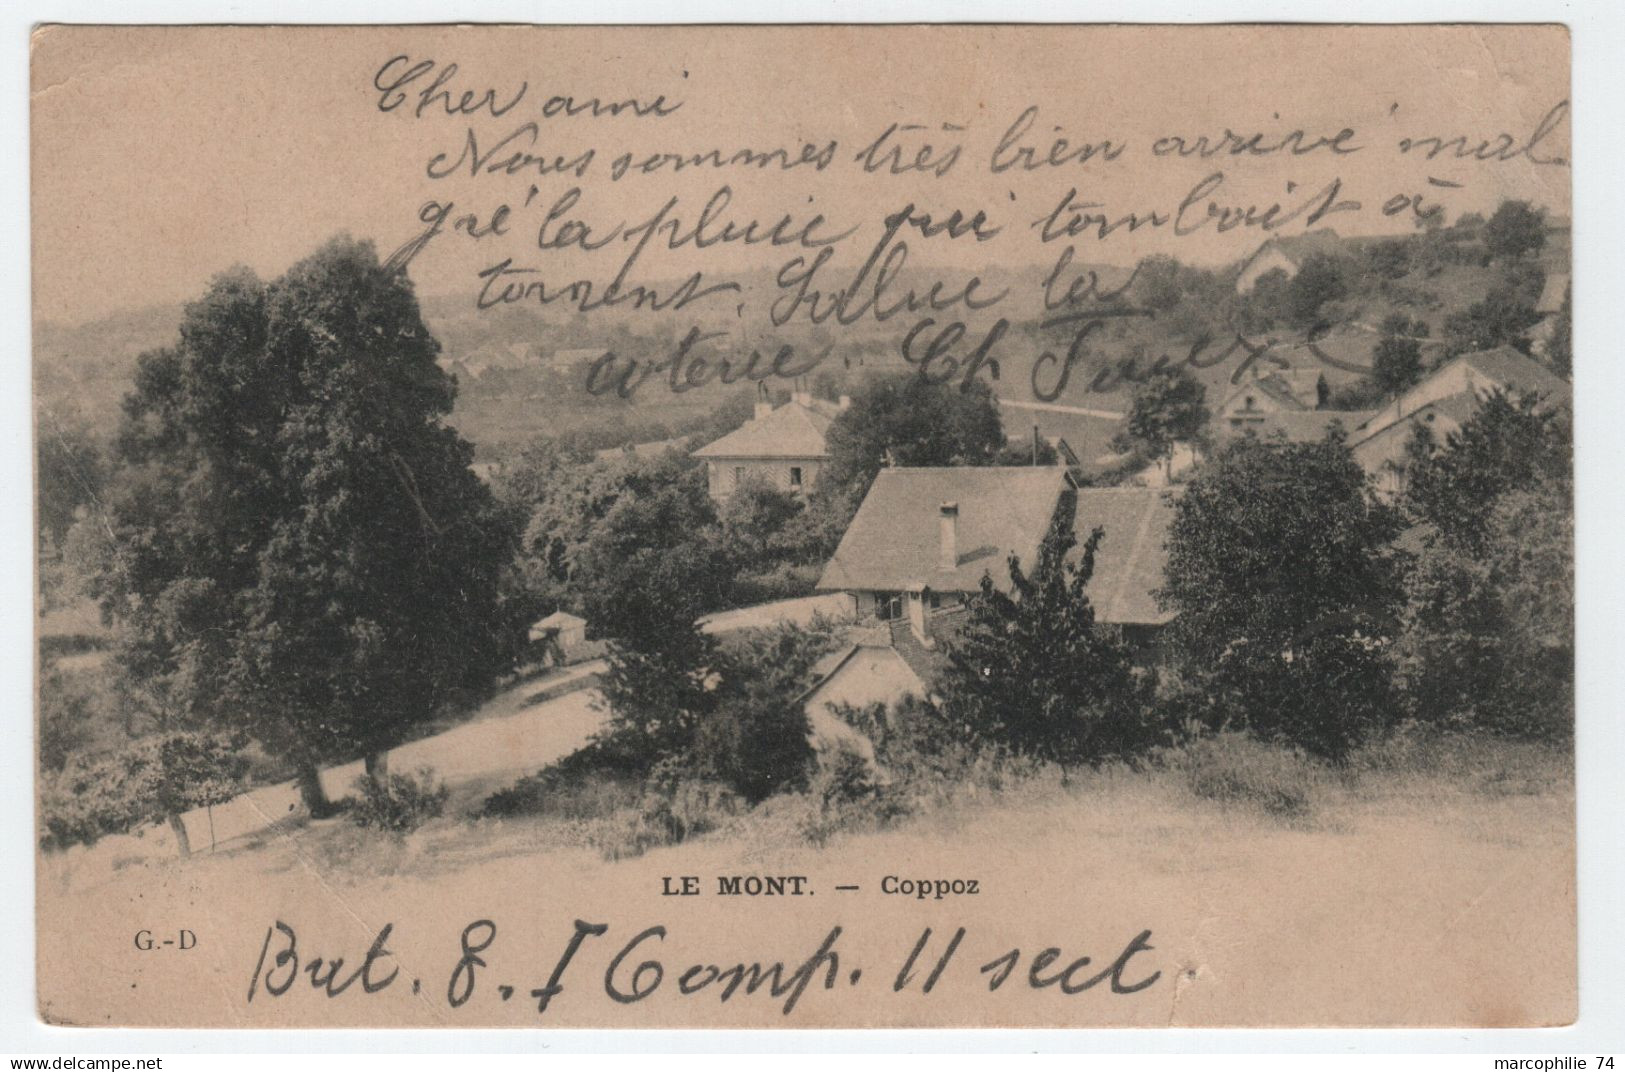 Cher ami
Nous sommes très bien arrivé mal
gré la pluie qui tombait à
torrent. Salue la
coterie. Ch
LE MONT. — Coppoz
G.-D
Bat. 8. I Comp. II sect
marcophilie 74